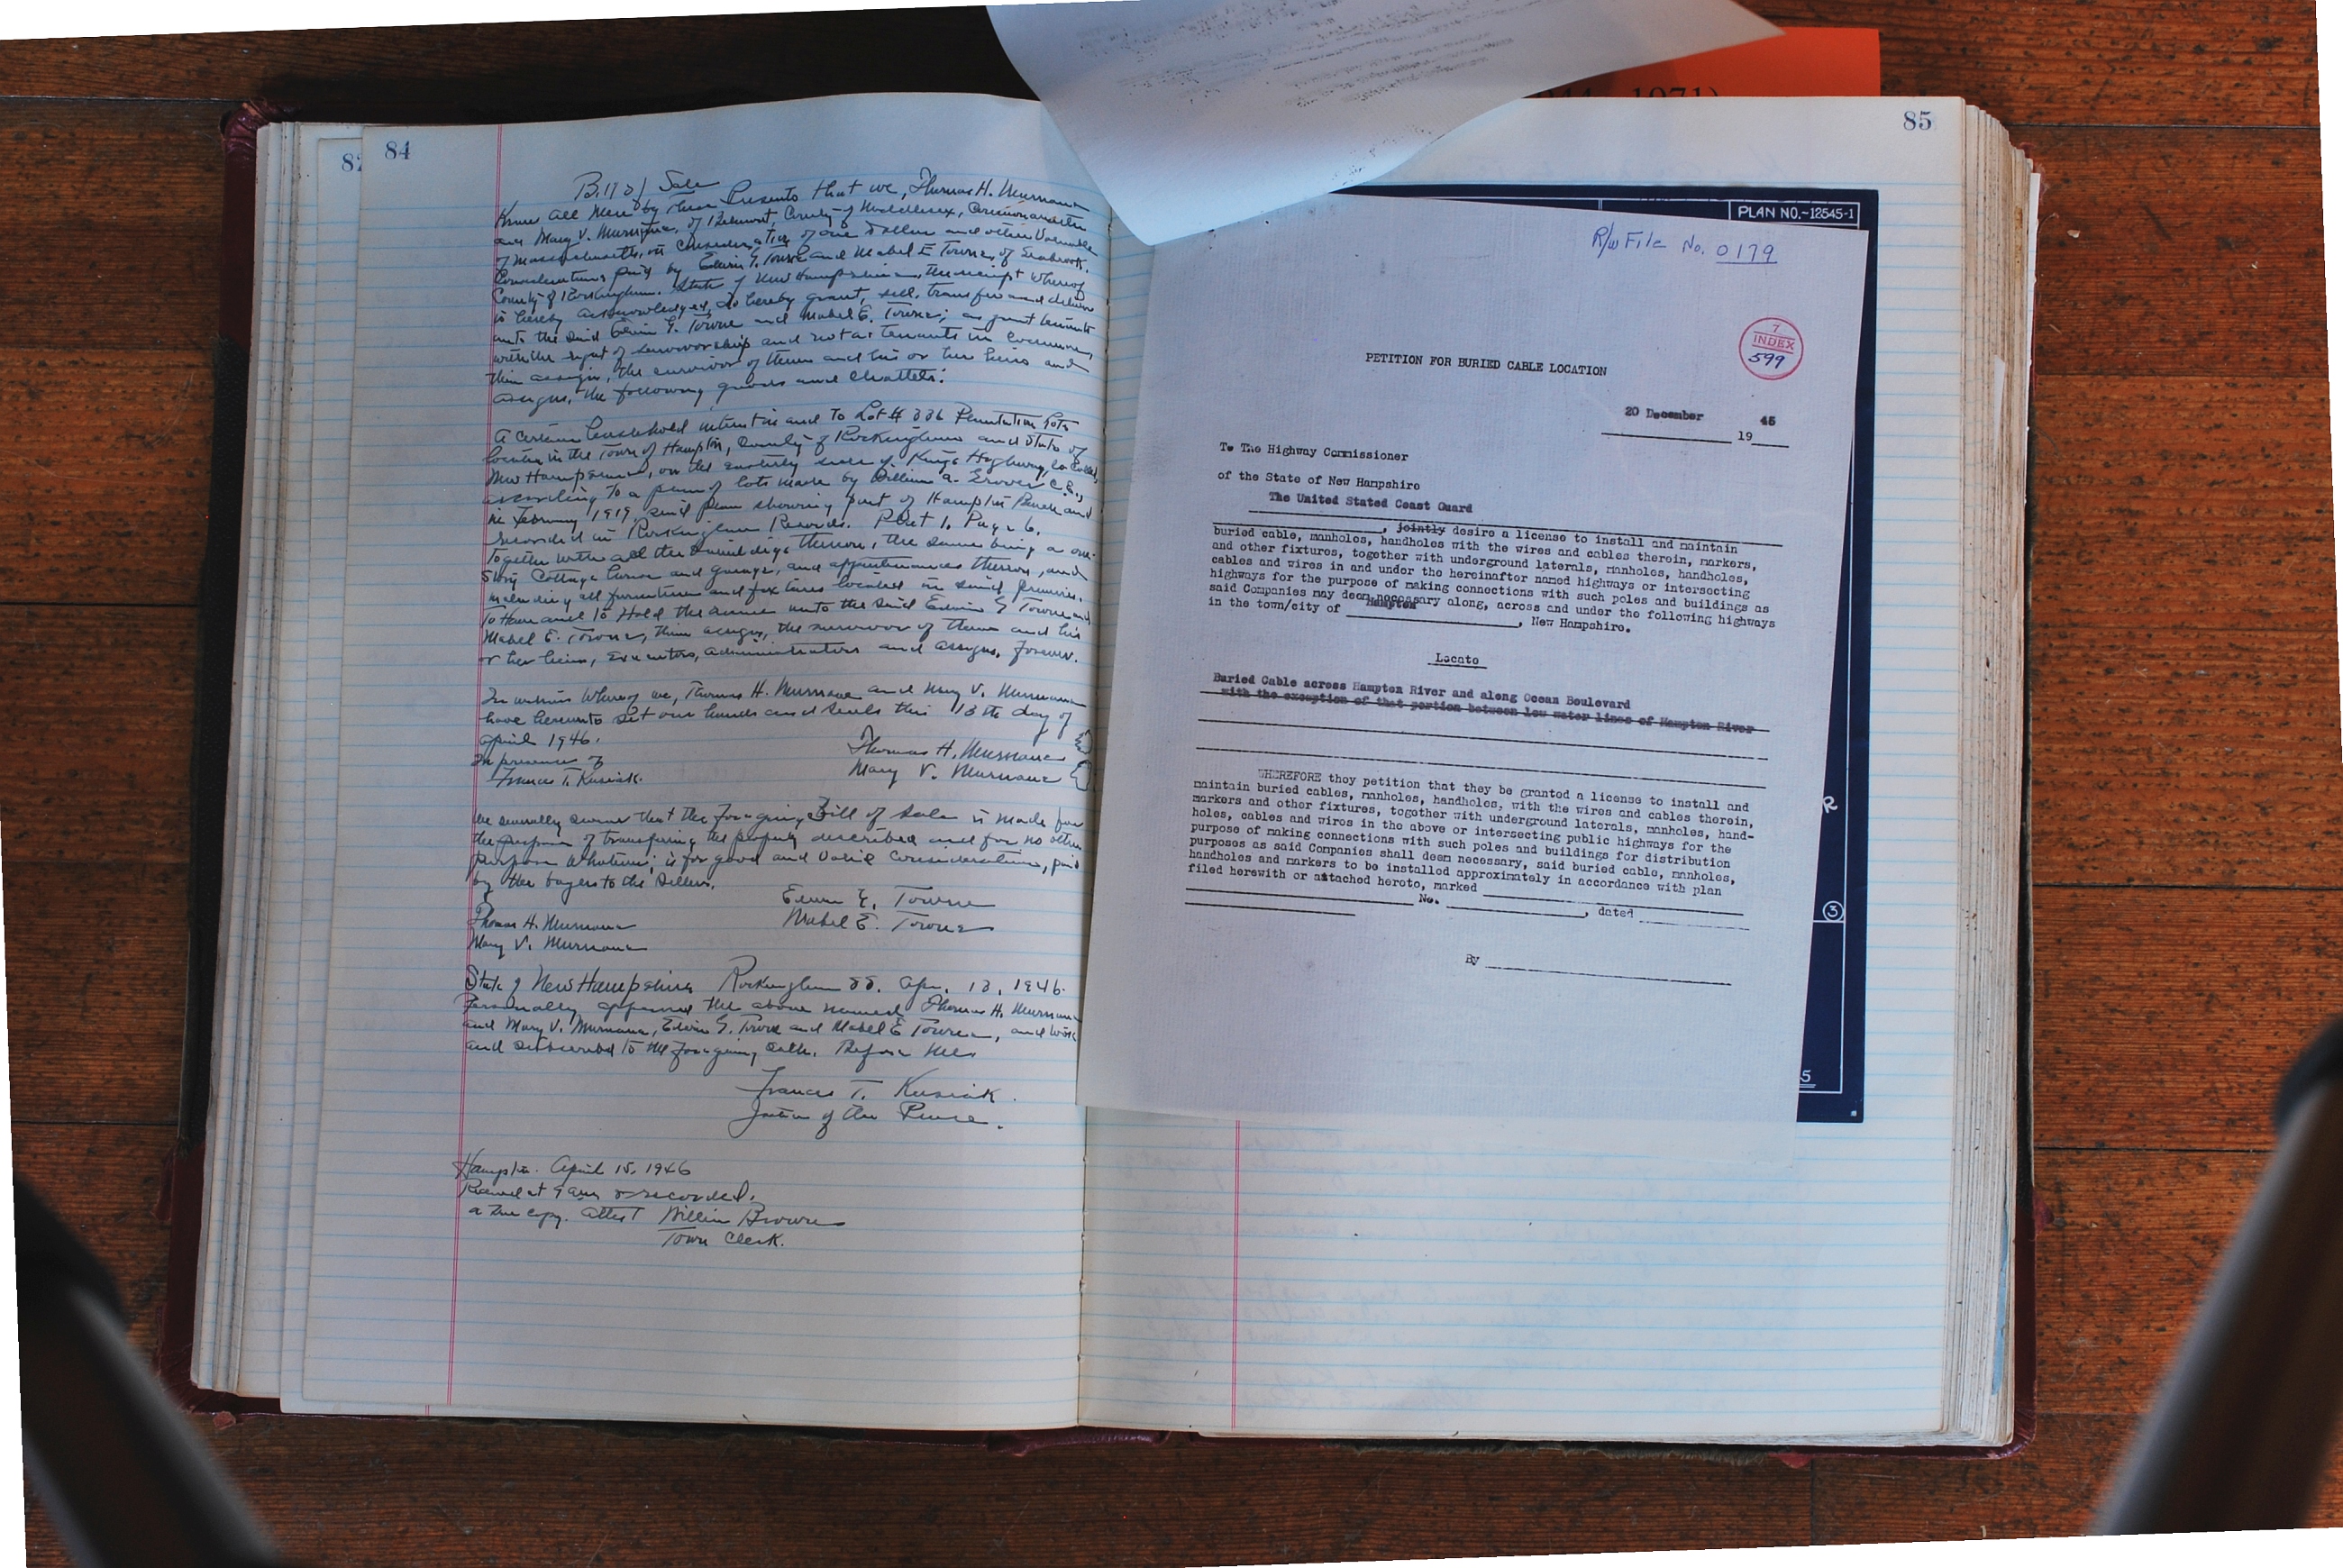 84
Bill of Sale
Know all Men by these Presents that we, Thomas H. Murnane
and Mary V. Murnane, of Belmont County of Middlesex, Commonwealth
of Massachusetts, in consideration of one Dollar and other Valuable
Considerations paid by Edwin G. Towne and Mabel E Towne, of Seabrook,
County of Rockingham. State of New Hampshire, the receipt whereof
is hereby acknowledged, do hereby grant, sell, transfer and deliver
unto the said Edwin G. Towne and Mabel E. Towne; as joint tenants
with the right of survivorship and not as tenants in common,
their assigns, the survivor of them and his or her heirs and
assigns, the following goods and chattels:
A certain leasehold interest in and to Lot # 336 Plantation Lots
located in the Town of Hampton, County of Rockingham and State of
New Hampshire, on the easterly side of Kings Highway, so called,
according to a plan of lots made by William A. Grover C.E.,
in February 1919, said plan showing part of Hampton Beach and
recorded in Rockingham Records. Plat 1, Page 6.
Together with all the buildings thereon, the same being a one-
story Cottage house and garage, and appurtenances thereon, and
including all furniture and fixtures located in said premises.
To Have and to Hold the same unto the said Edwin G Towne and
Mabel E. Towne, their assigns, the survivor of them and his
or her heirs, executors, administrators and assigns, forever.
In witness Whereof we, Thomas H. Murnane and Mary V. Murnane
have hereunto set our hands and seals this 13th day of
April 1946.
In presence of
Thomas H. Murnane
Frances T. Kusiak.
Mary V. Murnane
We severally swear that the foregoing Bill of Sale is made for
the purpose of transferring the property described and for no other
purpose whatever; is for good and valid consideration, paid
by the buyers to the sellers.
Edwin G. Towne
Thomas H. Murnane
Mabel E. Towne
Mary V. Murnane
State of New Hampshire Rockingham SS. Apr. 13, 1946.
Personally appeared the above named Thomas H. Murnane
and Mary V. Murnane, Edwin G. Towne and Mabel E Towne, and
and subscribed to the foregoing oath. Before Me
Frances T. Kusiak.
Justice of the Peace.
Hampton. April 15, 1946
Received at 9 am & recorded.
a true copy. Attest William Brown
Town Clerk.
85
PLAN NO.-12545-1
R/W File No. 0179
7
INDEX
599
PETITION FOR BURIED CABLE LOCATION
20 December 1945
To The Highway Commissioner
of the State of New Hampshire
The United Stated Coast Guard
, jointly desire a license to install and maintain
buried cable, manholes, handholes with the wires and cables therein, markers,
and other fixtures, together with underground laterals, manholes, handholes,
cables and wires in and under the hereinafter named highways or intersecting
highways for the purpose of making connections with such poles and buildings as
said Companies may deem necessary along, across and under the following highways
in the town/city of Hampton, New Hampshire.
Locate
Buried Cable across Hampton River and along Ocean Boulevard
with the exception of that portion between low water lines of Hampton River
WHEREFORE they petition that they be granted a license to install and
maintain buried cables, manholes, handholes, with the wires and cables therein,
markers and other fixtures, together with underground laterals, manholes, hand-
holes, cables and wires in the above or intersecting public highways for the
purpose of making connections with such poles and buildings for distribution
purposes as said Companies shall deem necessary, said buried cable, manholes,
handholes and markers to be installed approximately in accordance with plan
filed herewith or attached hereto, marked
No. , dated
By
R
3
5